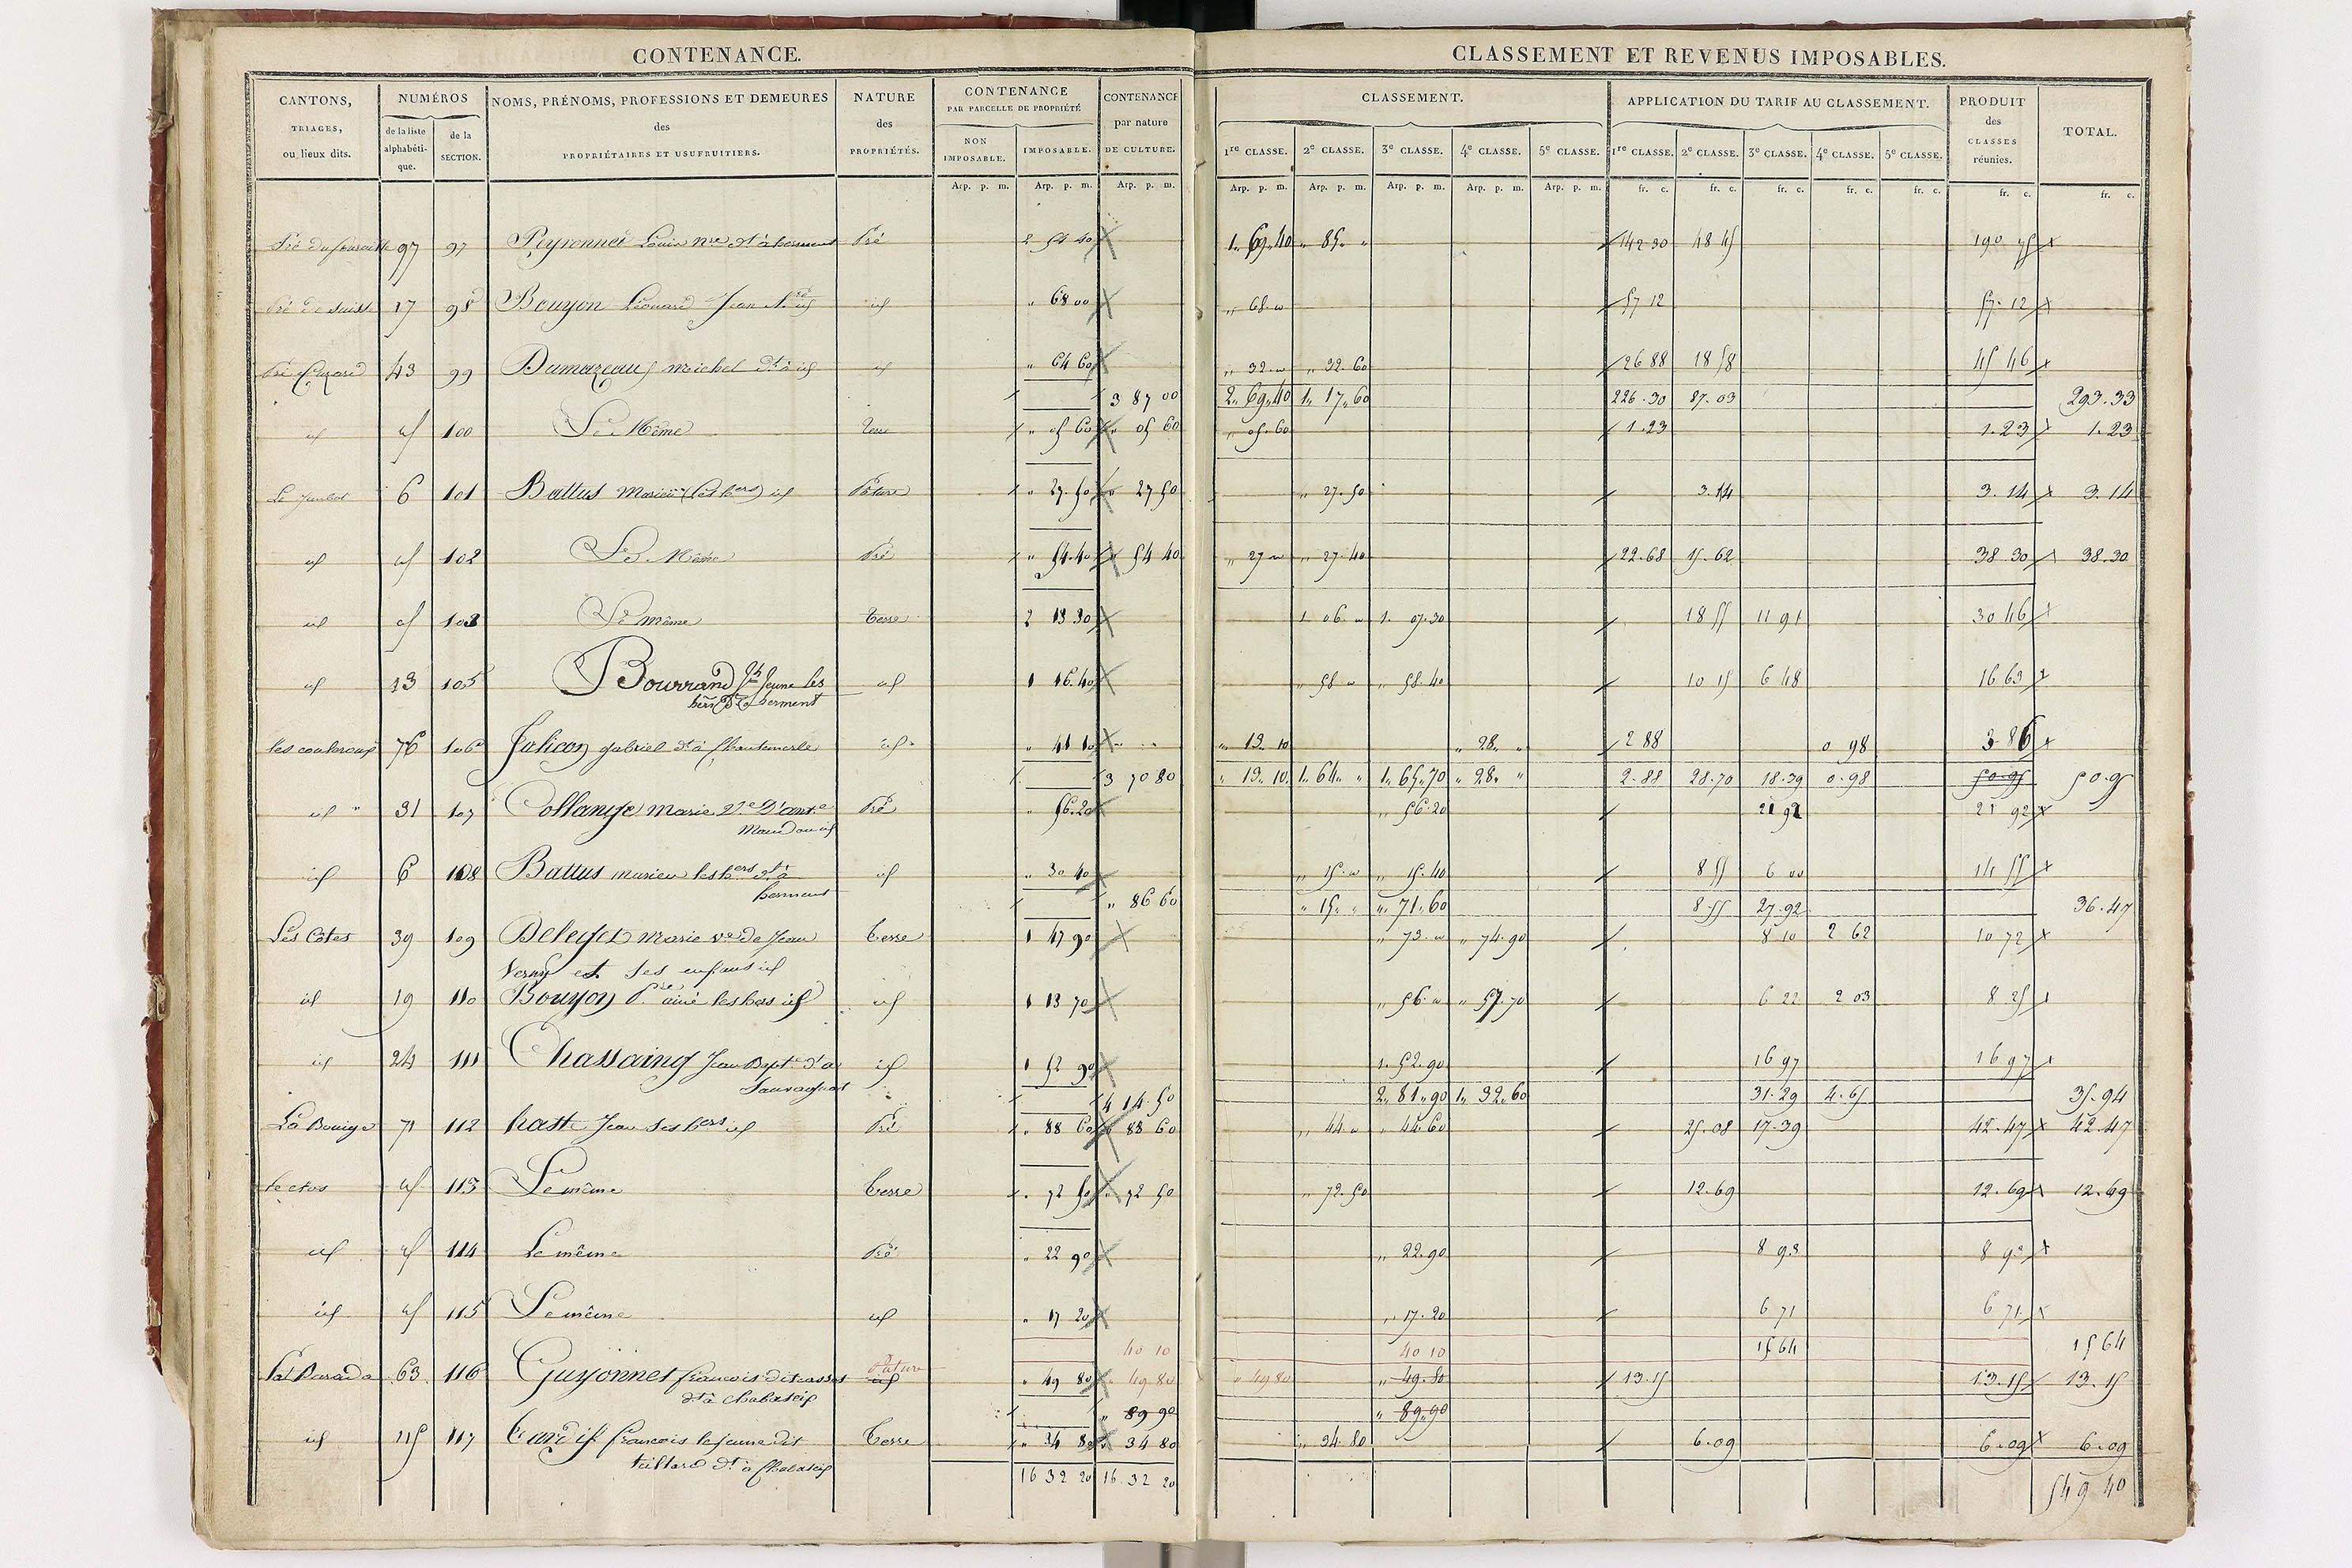 CONTENANCE.
CANTONS, TRIAGES, ou lieux dits.
NUMÉROS
de la liste alphabétique.
de la SECTION.
NOMS, PRÉNOMS, PROFESSIONS ET DEMEURES
des
PROPRIÉTAIRES ET USUFRUITIERS.
NATURE
des
PROPRIÉTÉS.
CONTENANCE
PAR PARCELLE DE PROPRIÉTÉ
NON IMPOSABLE.
IMPOSABLE.
CONTENANCE
par nature
DE CULTURE.
Arp. p. m. Arp. p. m. Arp. p. m.
97 97 Peyronnet Louis Pré 2 54 40
17 98 Bouyon Léonard Jean id " 68 00
43 99 Dumazeaud michel dt à id id " 64 60
3 87 00
id id 100 Le Même Terre " 05 60 " 05 60
6 101 Battus Marien (les hers) id Pature " 27.50 " 27 50
id id 102 Le Même Pré " 54.40 " 54 40
id id 103 Le même terre 2 13 30
id 13 105 Bourrand jeune les
hers
id 1 16.40
76 106 Jalicon gabriel dt à Chantemerle id " 41 10
3 70 80
id 31 107 Collange marie Pré " 56.20
id 6 108 Battus marien les hers dt à id " 30 40
" 86 60
Les Côtes 39 109 marie ve de Jean terre 1 47 90
et ses enfans id
id 19 110 Bouyon ainé les hers id id 1 13 70
id 24 111 Chassaing Jean Bapt. dt à id 1 52 90
Sauvagnat
4 14 50
La Bouige 71 112 hast Jean ses hers id Pré " 88 60 " 88 60
le clos id 113 Le même terre " 72 50 " 72 50
id id 114 Le même Pré " 22 90
id id 115 Le même id " 17 20
40 10
63 116 Guyonnet françois dit
Pature
id " 49 80 " 49 80
dt à
" 89 90
id 115 117 françois le jeune dit terre " 34 80 " 34 80
dt à
16 32 20 16 32 20
CLASSEMENT ET REVENUS IMPOSABLES.
CLASSEMENT.
1re CLASSE. 2e CLASSE. 3e CLASSE. 4e CLASSE. 5e CLASSE.
APPLICATION DU TARIF AU CLASSEMENT.
1re CLASSE. 2e CLASSE. 3e CLASSE. 4e CLASSE. 5e CLASSE.
PRODUIT
des
CLASSES
réunies.
TOTAL.
Arp. p. m. Arp. p. m. Arp. p. m. Arp. p. m. Arp. p. m. fr. c. fr. c. fr. c. fr. c. fr. c. fr. c. fr. c.
1. 69.40 " 85. " 142 30 48 45 190 75
" 68. " 57 12 57.12
" 32 " " 32.60 26 88 18 58 45 46
2. 69.40 1. 17.60 226.30 87.03 293.33
" 05.60 1.23 1.23 1.23
" 27.50 3.14 3.14 3.14
" 27 " " 27.40 22.68 15.62 38 30 38.30
1. 06 " 1. 07.30 18 55 11 91 30 46
" 58 " " 58.40 10 15 6 48 16 63
" 13. 10 " 28. " 2 88 0 98 3 86
" 13. 10 1. 64. " 1. 65.70 " 28. " 2.88 28.70 18.39 0.98 50.95 50.95
" 56.20 21 92 21 92
" 15 " " 15.40 8 55 6 00 14 55
" 15. " " 71.60 8.55 27.92 36.47
" 73 " " 74.90 8 10 2 62 10 72
" 56 " " 57.70 6 22 2 03 8 25
1. 52.90 16 97 16 97
2. 81.90 1. 32.60 31.29 4.65 35.94
" 44 " " 44.60 25.08 17.39 42.47 42.47
" 72.50 12.69 12.69 12.69
" 22.90 8 93 8 93
" 17.20 6 71 6 71
40 10 15 64 15 64
" 49 80 " 49.80 13.15 13.15 13.15
" 89.90
" 34.80 6.09 6.09 6.09
549 40